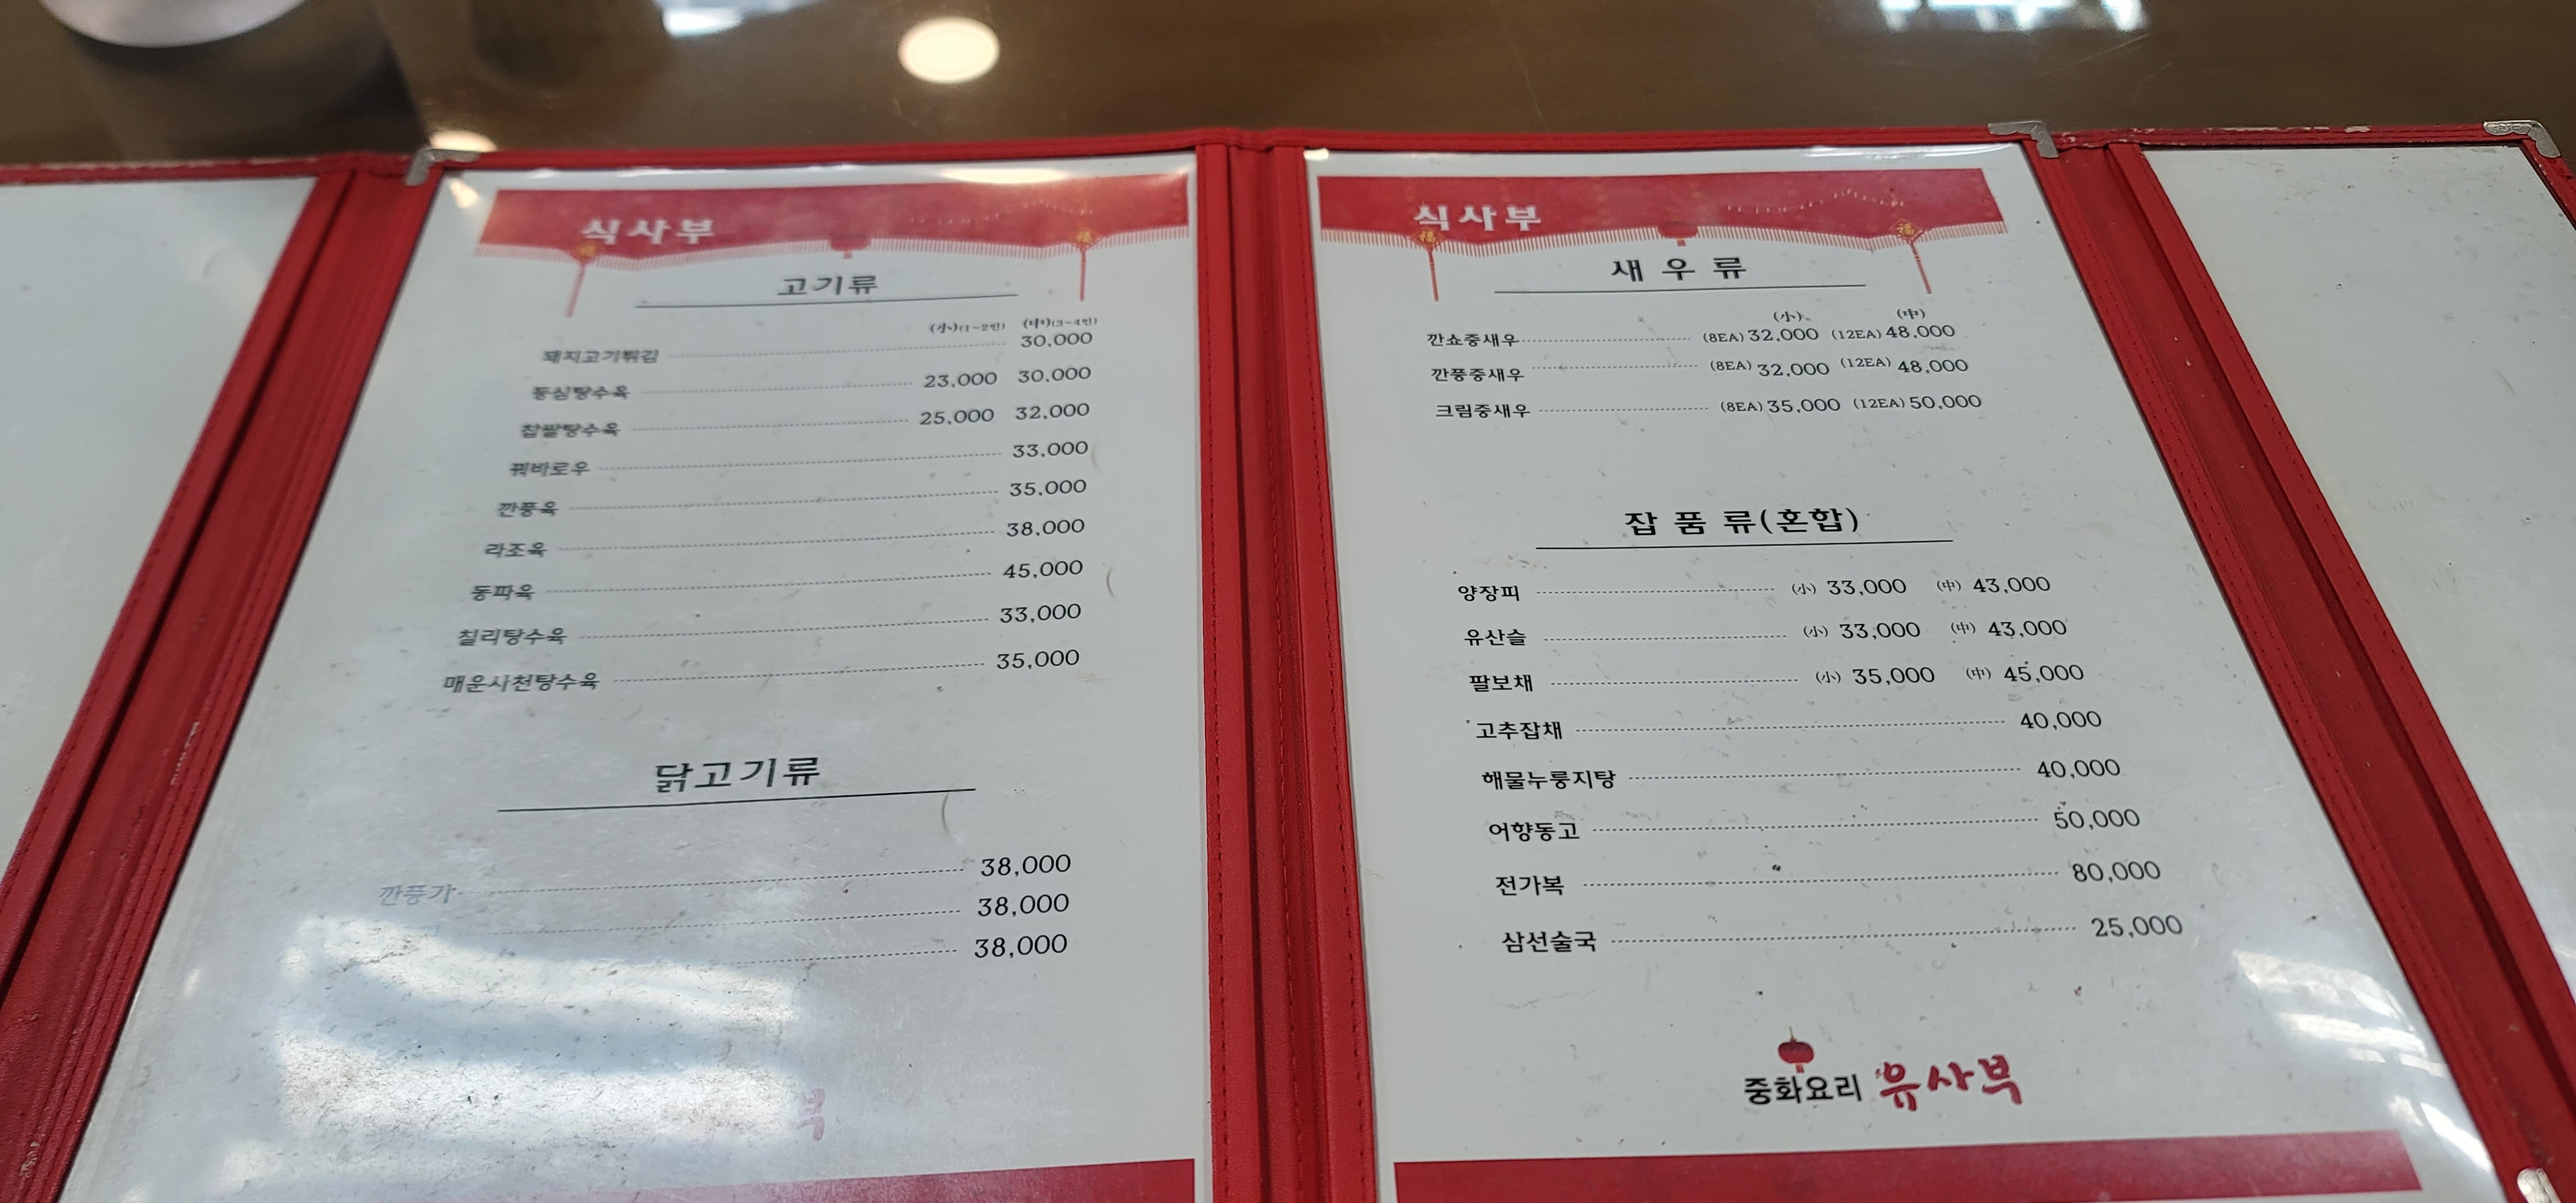 식사부
고기류
(小)(1~2인) (中)(3~4인)
돼지고기튀김 30,000
등심탕수육 23,000 30,000
찹쌀탕수육 25,000 32,000
꿔바로우 33,000
깐풍육 35,000
라조육 38,000
동파육 45,000
칠리탕수육 33,000
매운사천탕수육 35,000
닭고기류
깐풍기 38,000
38,000
38,000
식사부
福 福
새우류
(小) (中)
깐쇼중새우 (8EA) 32,000 (12EA) 48,000
깐풍중새우 (8EA) 32,000 (12EA) 48,000
크림중새우 (8EA) 35,000 (12EA) 50,000
잡품류(혼합)
양장피 (小) 33,000 (中) 43,000
유산슬 (小) 33,000 (中) 43,000
팔보채 (小) 35,000 (中) 45,000
고추잡채 40,000
해물누룽지탕 40,000
어향동고 50,000
전가복 80,000
삼선술국 25,000
중화요리 유사부